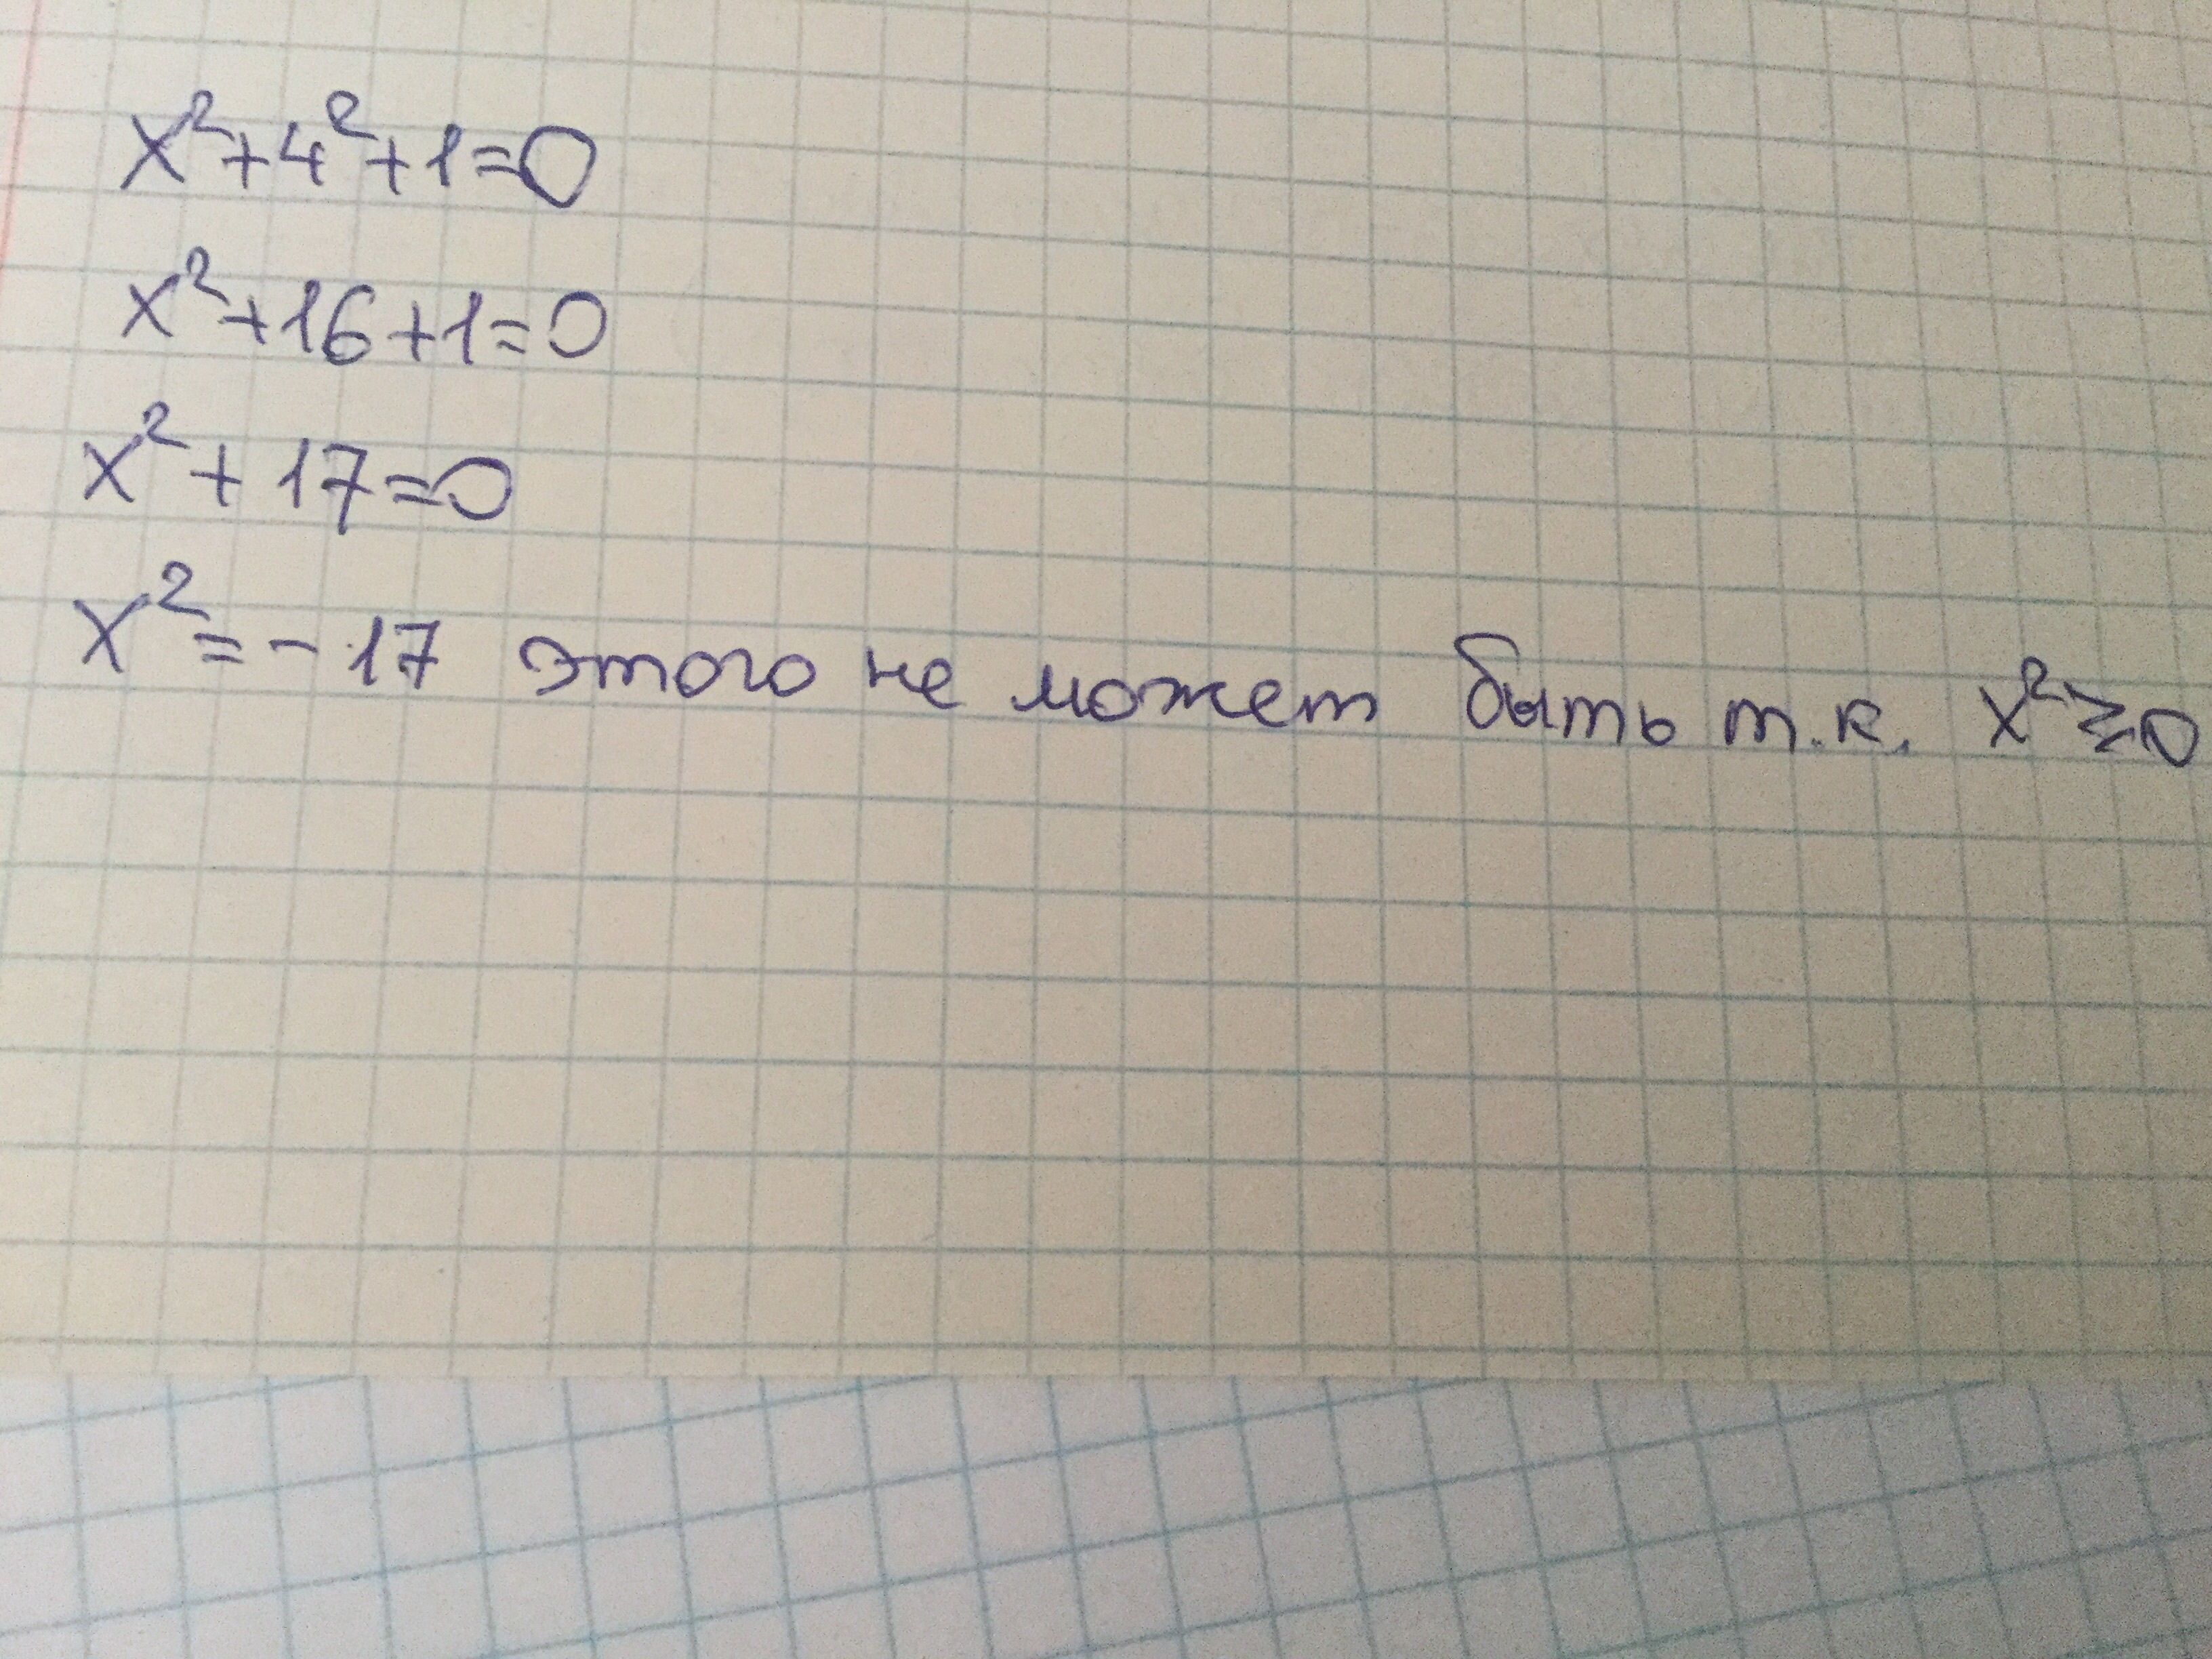 x²+4²+1=0
x²+16+1=0
x²+17=0
x²=-17 этого не может быть т.к. x²≥0